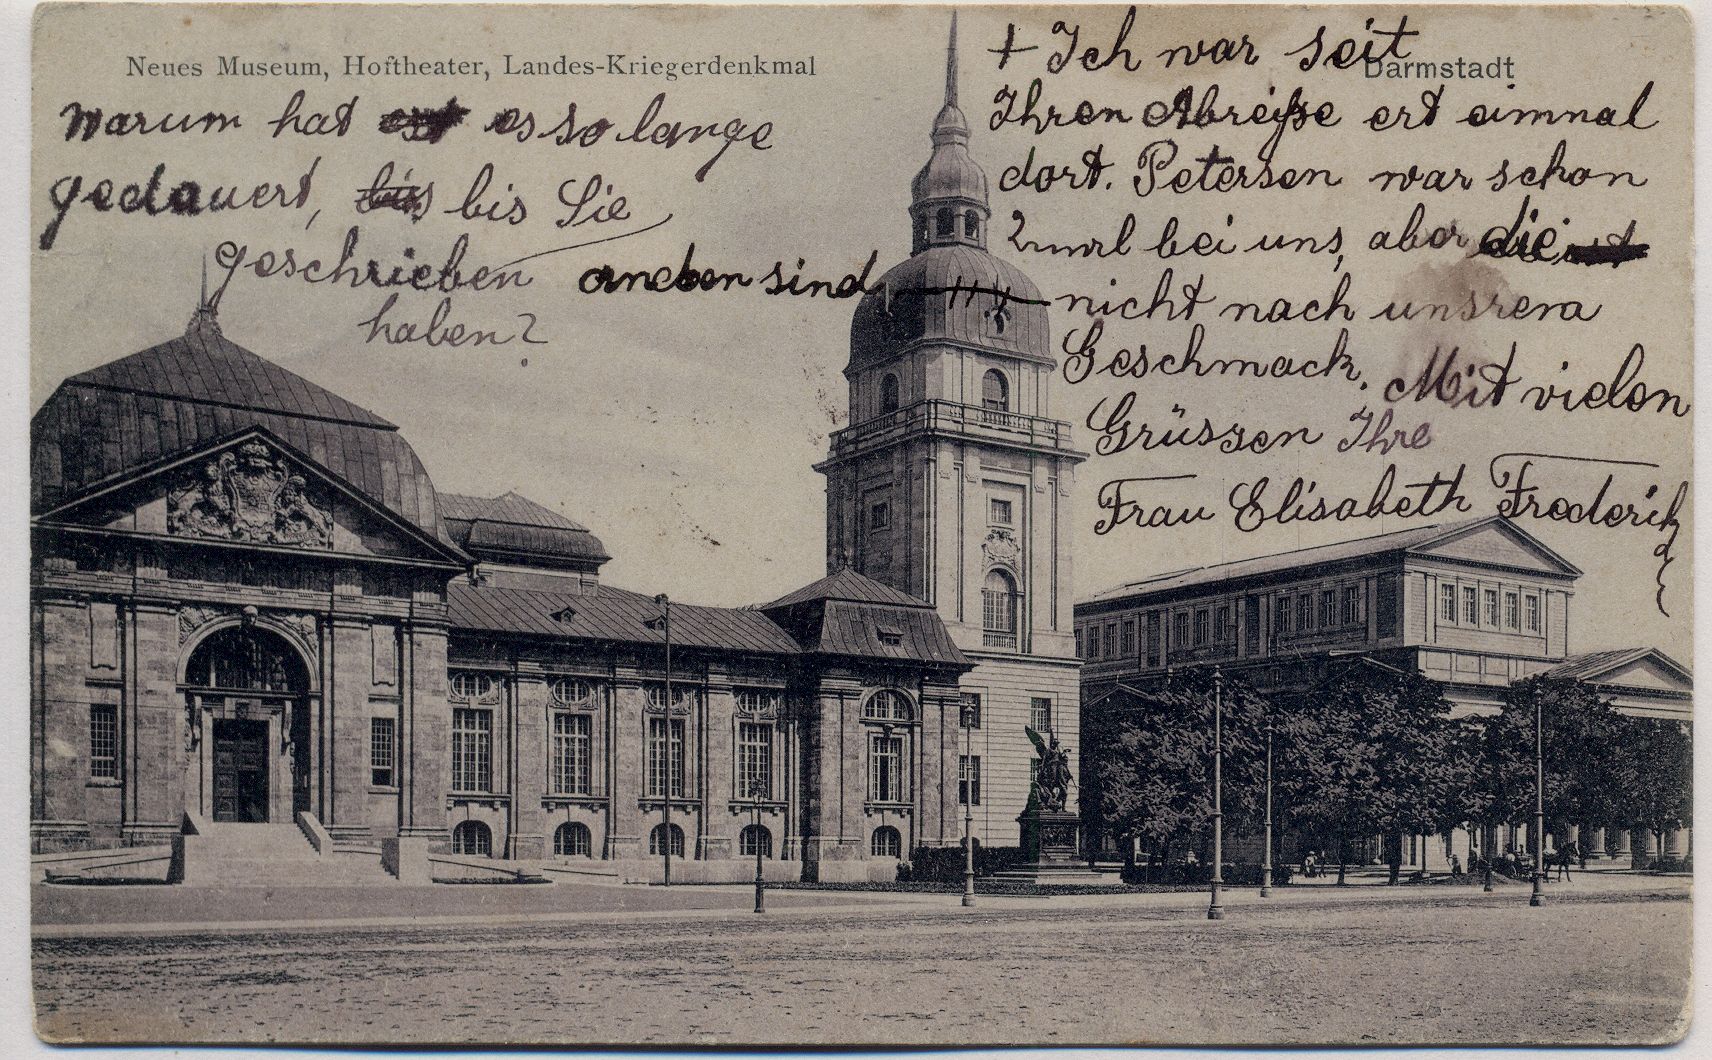 Neues Museum, Hoftheater, Landes-Kriegerdenkmal
Darmstadt
Warum hat es so lange
gedauert, bis bis Sie
geschrieben
haben?
+ Ich war seit
Ihren Abreise ert eimnal
dort. Petersen war schon
2mal bei uns, aber die
aneben sind nicht nach unsrem
Geschmack. Mit vielen
Grüssen Ihre
Frau Elisabeth Frederik